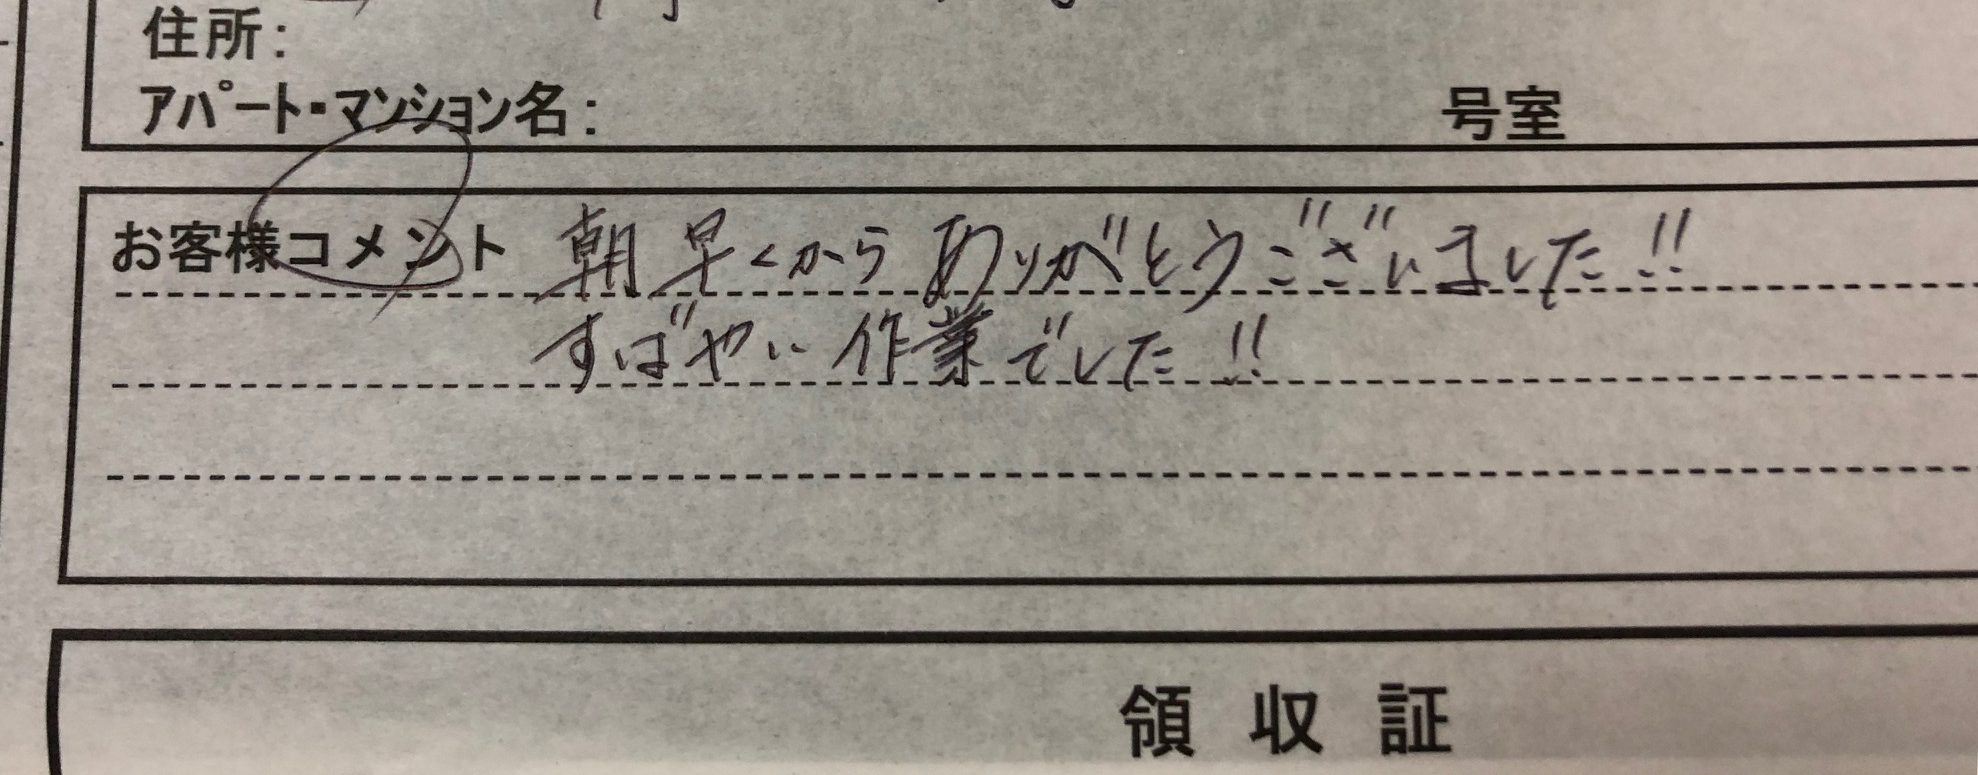 住所:
アパート・マンション名: 号室
お客様コメント 朝早くからありがとうございました!!
すばやい作業でした!!
領収証